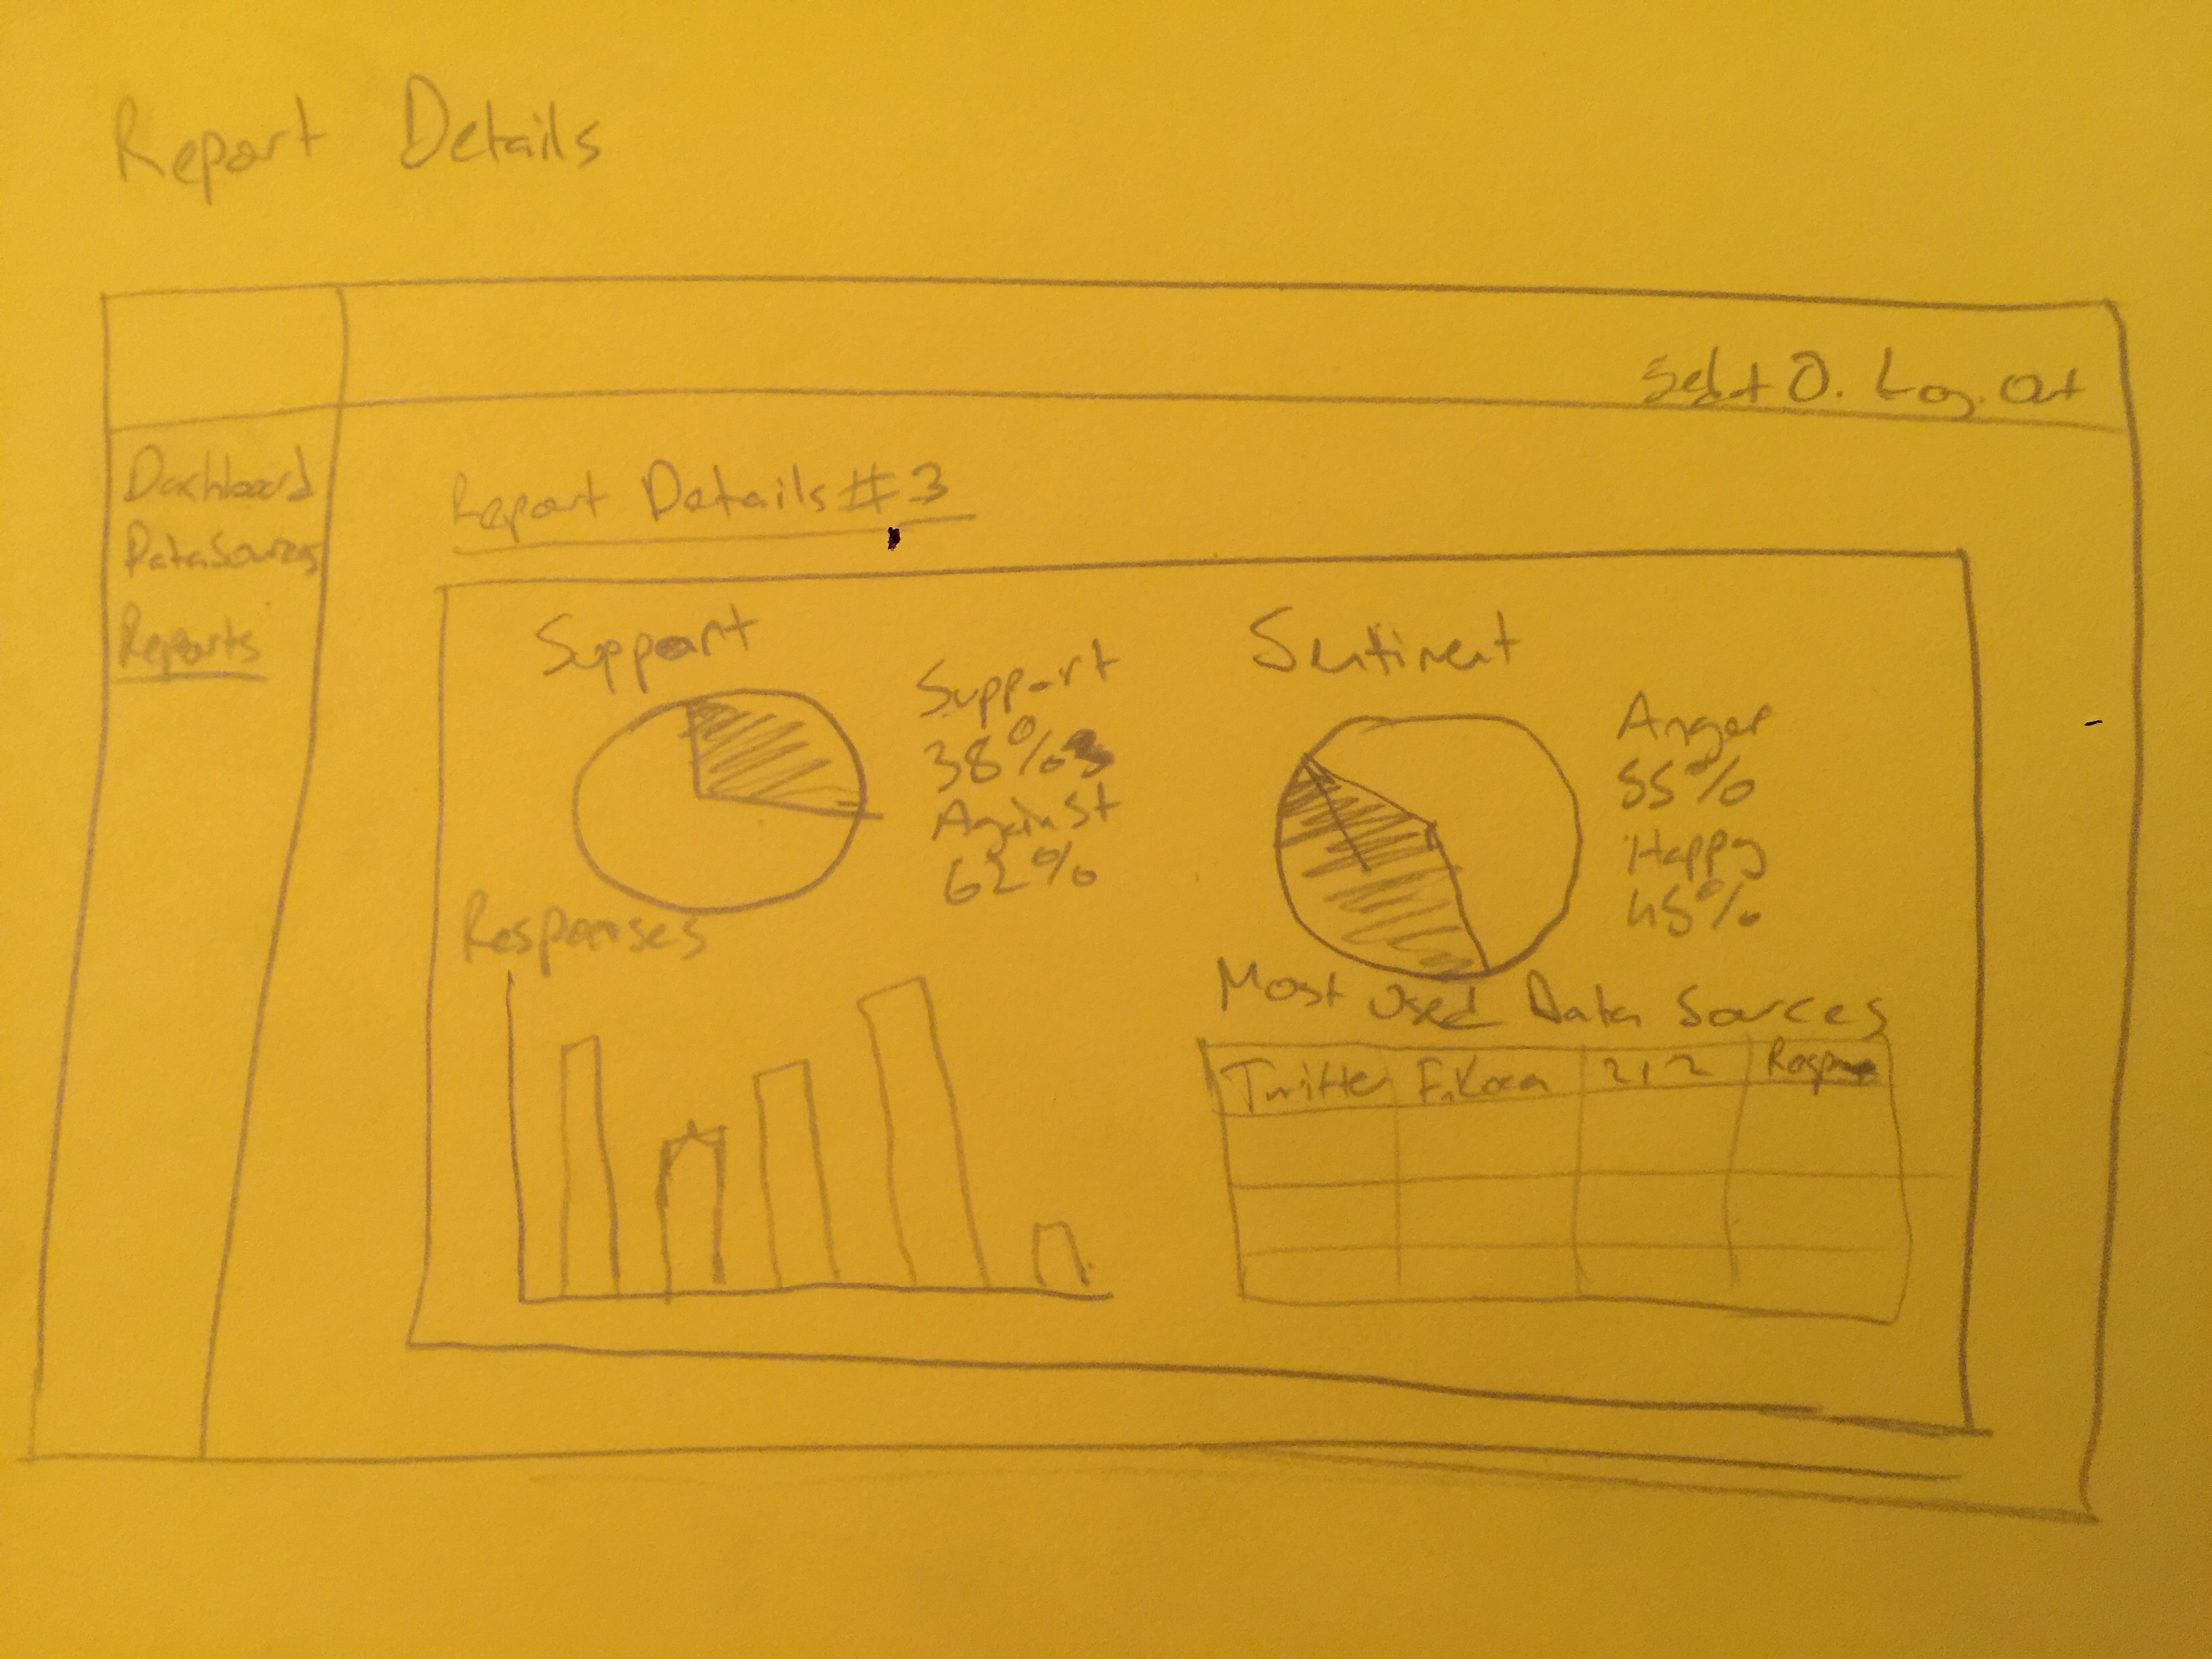 Report Details
O. Log. Out
Dashboard
DataSources
Reports
Report Details #3
Support
Support
38%
Against
62%
Sentiment
Anger
55%
Happy
45%
Responses
Most Used Data Sources
Twitter